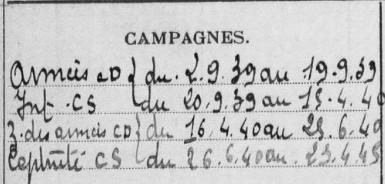 CAMPAGNES.
Armées CD { du . 2 . 9 . 39 au 19 . 9 . 39
Int . CS du 20 . 9 . 39 au 15 . 4 . 40
Z. des armées CD { du 16 . 4 . 40 au 25 . 6 . 40
Captivité CS du 26 . 6 . 40 au . 23 . 4 . 45